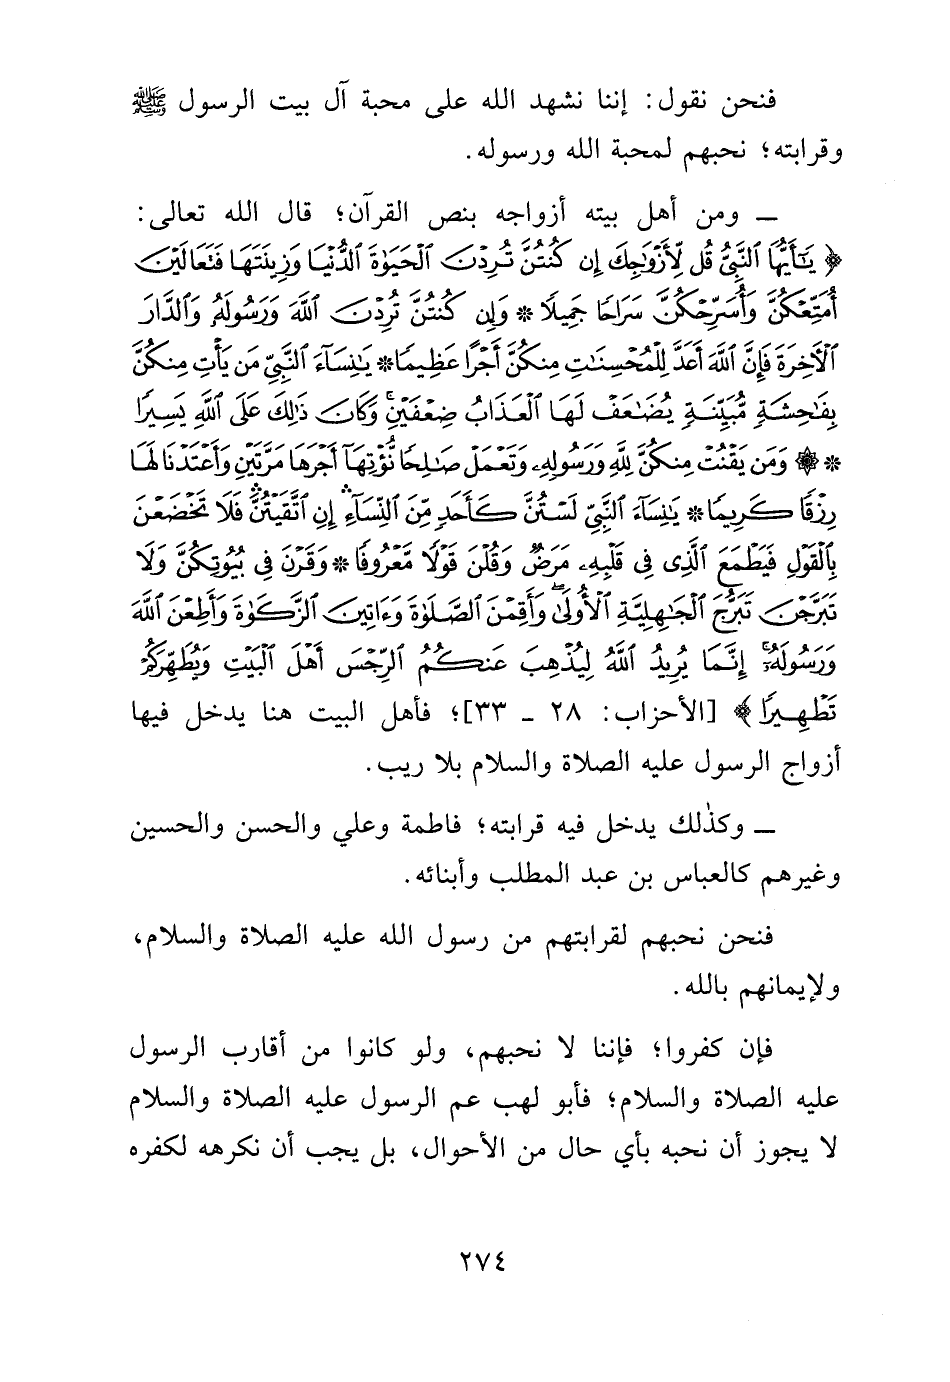 فنحن نقول: إننا نشهد الله على محبة آل بيت الرسول ﷺ
وقرابته؛ نحبهم لمحبة الله ورسوله.
ـ ومن أهل بيته أزواجه بنص القرآن؛ قال الله تعالى:
﴿ يَـٰٓأَيُّهَا ٱلنَّبِىُّ قُل لِّأَزْوَٰجِكَ إِن كُنتُنَّ تُرِدْنَ ٱلْحَيَوٰةَ ٱلدُّنْيَا وَزِينَتَهَا فَتَعَالَيْنَ
أُمَتِّعْكُنَّ وَأُسَرِّحْكُنَّ سَرَاحًا جَمِيلًا * وَإِن كُنتُنَّ تُرِدْنَ ٱللَّهَ وَرَسُولَهُۥ وَٱلدَّارَ
ٱلْآخِرَةَ فَإِنَّ ٱللَّهَ أَعَدَّ لِلْمُحْسِنَـٰتِ مِنكُنَّ أَجْرًا عَظِيمًا* يَـٰنِسَآءَ ٱلنَّبِىِّ مَن يَأْتِ مِنكُنَّ
بِفَـٰحِشَةٍ مُّبَيِّنَةٍ يُضَـٰعَفْ لَهَا ٱلْعَذَابُ ضِعْفَيْنِ ۚ وَكَانَ ذَٰلِكَ عَلَى ٱللَّهِ يَسِيرًا
* ۞ وَمَن يَقْنُتْ مِنكُنَّ لِلَّهِ وَرَسُولِهِۦ وَتَعْمَلْ صَـٰلِحًا نُّؤْتِهَآ أَجْرَهَا مَرَّتَيْنِ وَأَعْتَدْنَا لَهَا
رِزْقًا كَرِيمًا* يَـٰنِسَآءَ ٱلنَّبِىِّ لَسْتُنَّ كَأَحَدٍ مِّنَ ٱلنِّسَآءِ ۚ إِنِ ٱتَّقَيْتُنَّ فَلَا تَخْضَعْنَ
بِٱلْقَوْلِ فَيَطْمَعَ ٱلَّذِى فِى قَلْبِهِۦ مَرَضٌ وَقُلْنَ قَوْلًا مَّعْرُوفًا* وَقَرْنَ فِى بُيُوتِكُنَّ وَلَا
تَبَرَّجْنَ تَبَرُّجَ ٱلْجَـٰهِلِيَّةِ ٱلْأُولَىٰ ۖ وَأَقِمْنَ ٱلصَّلَوٰةَ وَءَاتِينَ ٱلزَّكَوٰةَ وَأَطِعْنَ ٱللَّهَ
وَرَسُولَهُۥٓ ۚ إِنَّمَا يُرِيدُ ٱللَّهُ لِيُذْهِبَ عَنكُمُ ٱلرِّجْسَ أَهْلَ ٱلْبَيْتِ وَيُطَهِّرَكُمْ
تَطْهِيرًا ﴾ [الأحزاب: ٢٨ ـ ٣٣]؛ فأهل البيت هنا يدخل فيها
أزواج الرسول عليه الصلاة والسلام بلا ريب.
ـ وكذٰلك يدخل فيه قرابته؛ فاطمة وعلي والحسن والحسين
وغيرهم كالعباس بن عبد المطلب وأبنائه.
فنحن نحبهم لقرابتهم من رسول الله عليه الصلاة والسلام،
ولإيمانهم بالله.
فإن كفروا؛ فإننا لا نحبهم، ولو كانوا من أقارب الرسول
عليه الصلاة والسلام؛ فأبو لهب عم الرسول عليه الصلاة والسلام
لا يجوز أن نحبه بأي حال من الأحوال، بل يجب أن نكرهه لكفره
٢٧٤